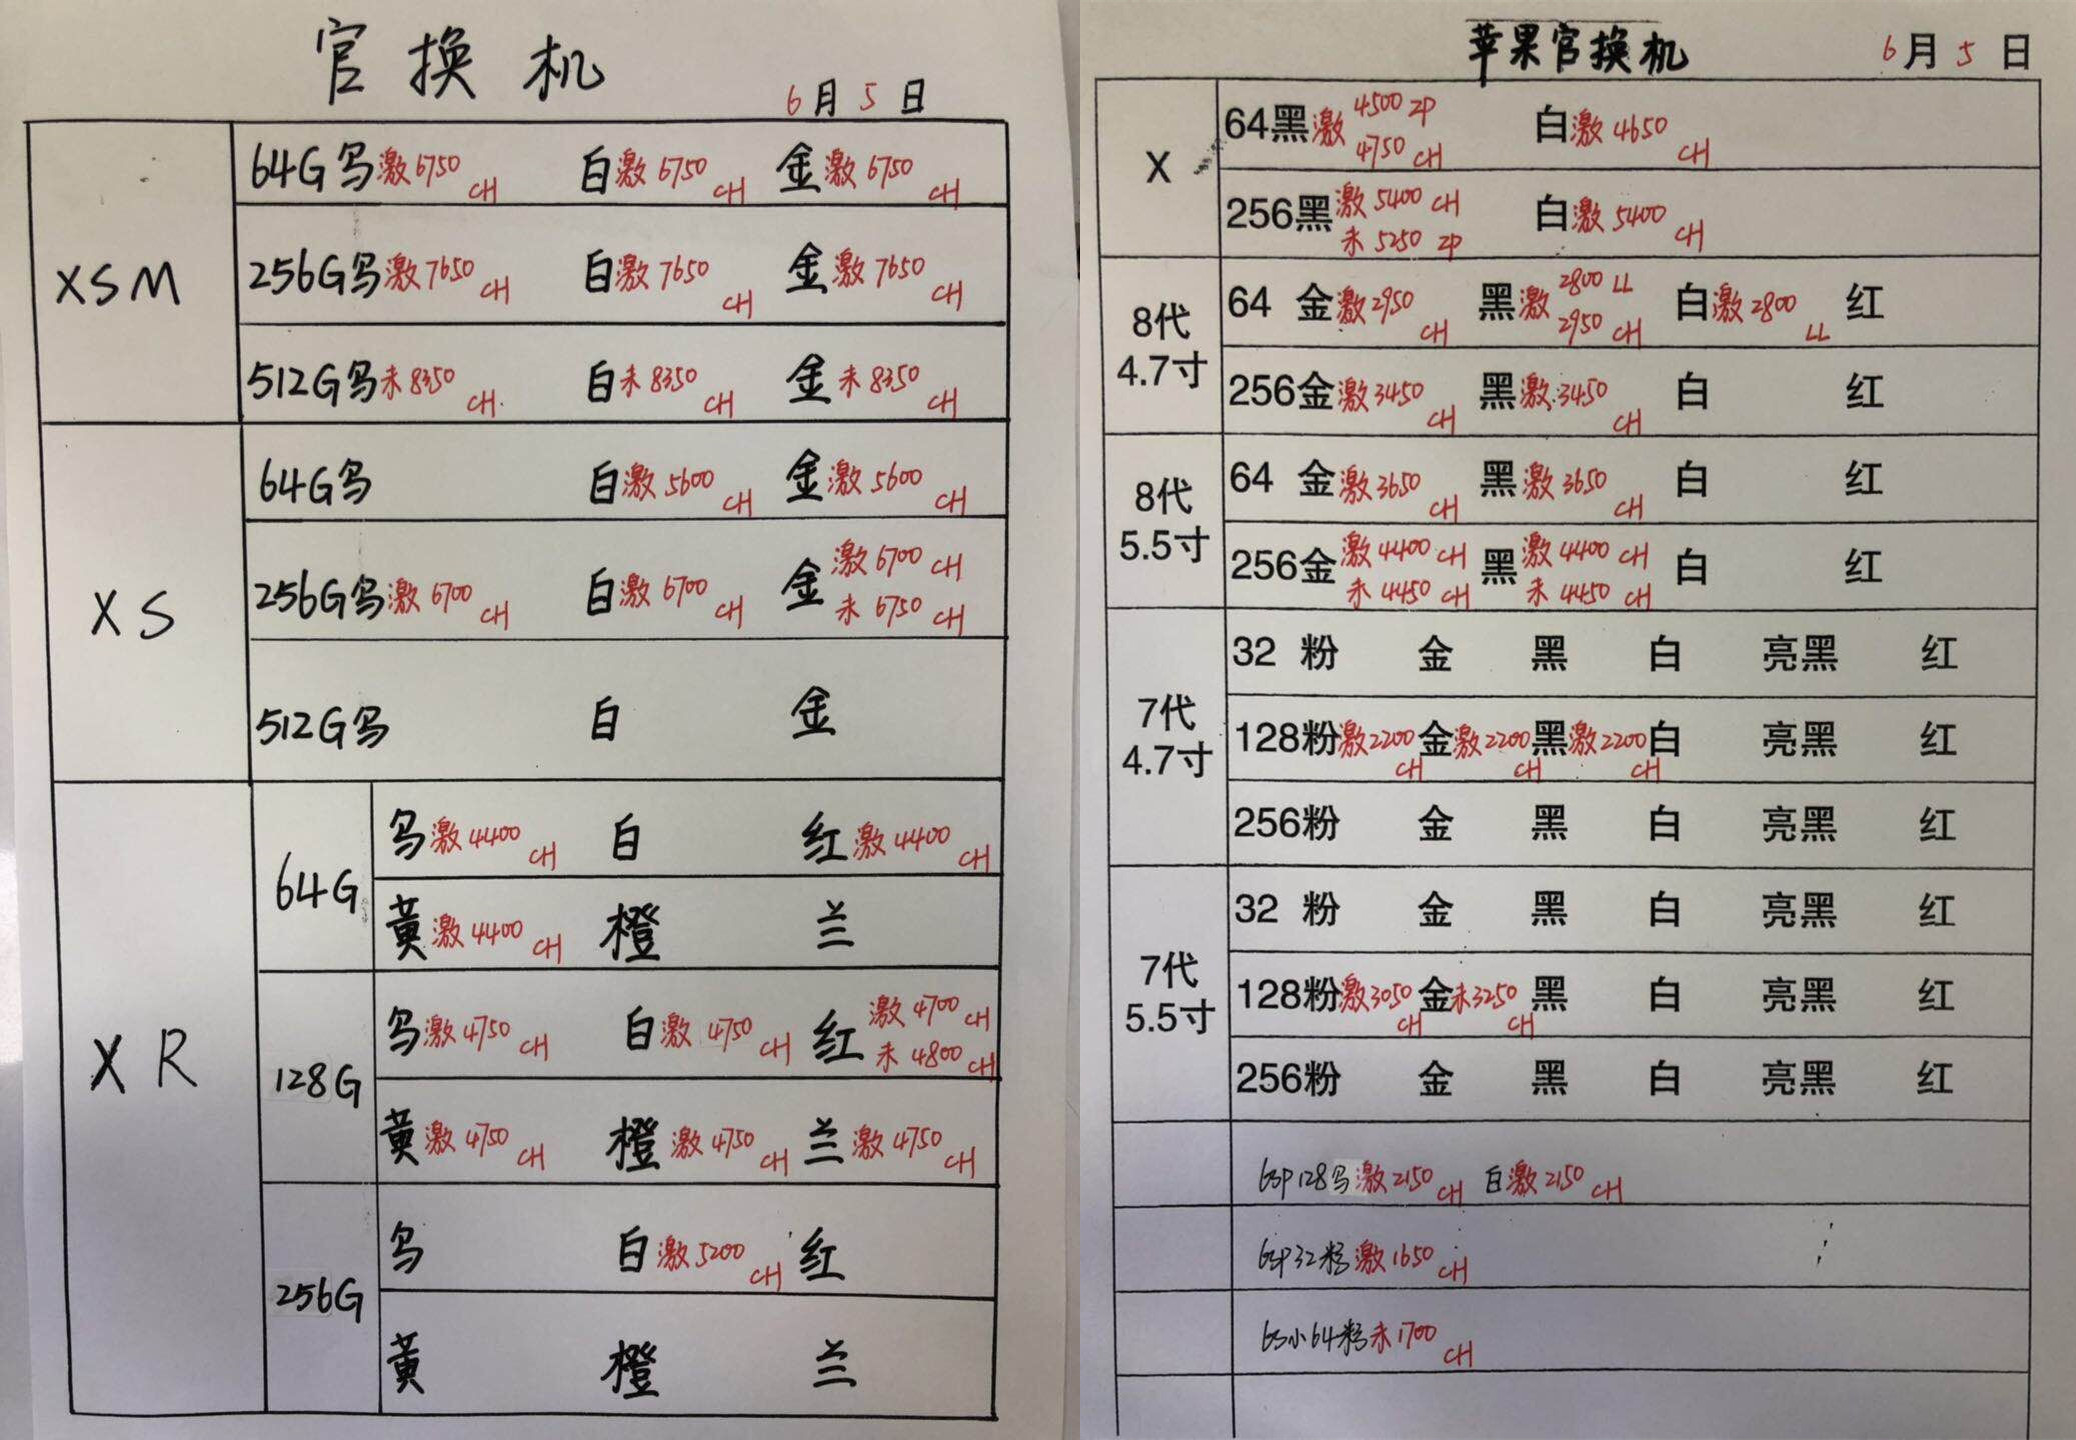 官换机
6月5日
XSM
64G乌激6750 CH 白激6750 CH 金激6750 CH
256G乌激7650 CH 白激7650 CH 金激7650 CH
512G乌未8350 CH 白未8350 CH 金未8350 CH
XS
64G乌 白激5600 CH 金激5600 CH
256G乌激6700 CH 白激6700 CH 金激6700 CH
未6750 CH
512G乌 白 金
XR
64G
乌激4400 CH 白 红激4400 CH
黄激4400 CH 橙 兰
128G
乌激4750 CH 白激4750 CH 红激4700 CH
未4800 CH
黄激4750 CH 橙激4750 CH 兰激4750 CH
256G
乌 白激5200 CH 红
黄 橙 兰
苹果官换机
6月5日
X
64黑激4500 ZP 白激4650 CH
4750 CH
256黑激5400 CH 白激5400 CH
未5250 ZP
8代
4.7寸
64 金激2950 CH 黑激2800 LL 白激2800 LL 红
2950 CH
256金激3450 CH 黑激3450 CH 白 红
8代
5.5寸
64 金激3650 CH 黑激3650 CH 白 红
256金激4400 CH 黑激4400 CH 白 红
未4450 CH 未4450 CH
7代
4.7寸
32 粉 金 黑 白 亮黑 红
128粉激2200 CH 金激2200 CH 黑激2200 CH 白 亮黑 红
256粉 金 黑 白 亮黑 红
7代
5.5寸
32 粉 金 黑 白 亮黑 红
128粉激3050 CH 金未3250 CH 黑 白 亮黑 红
256粉 金 黑 白 亮黑 红
6SP128乌激2150 CH 白激2150 CH
6SP32粉激1650 CH
6S小64粉未1700 CH